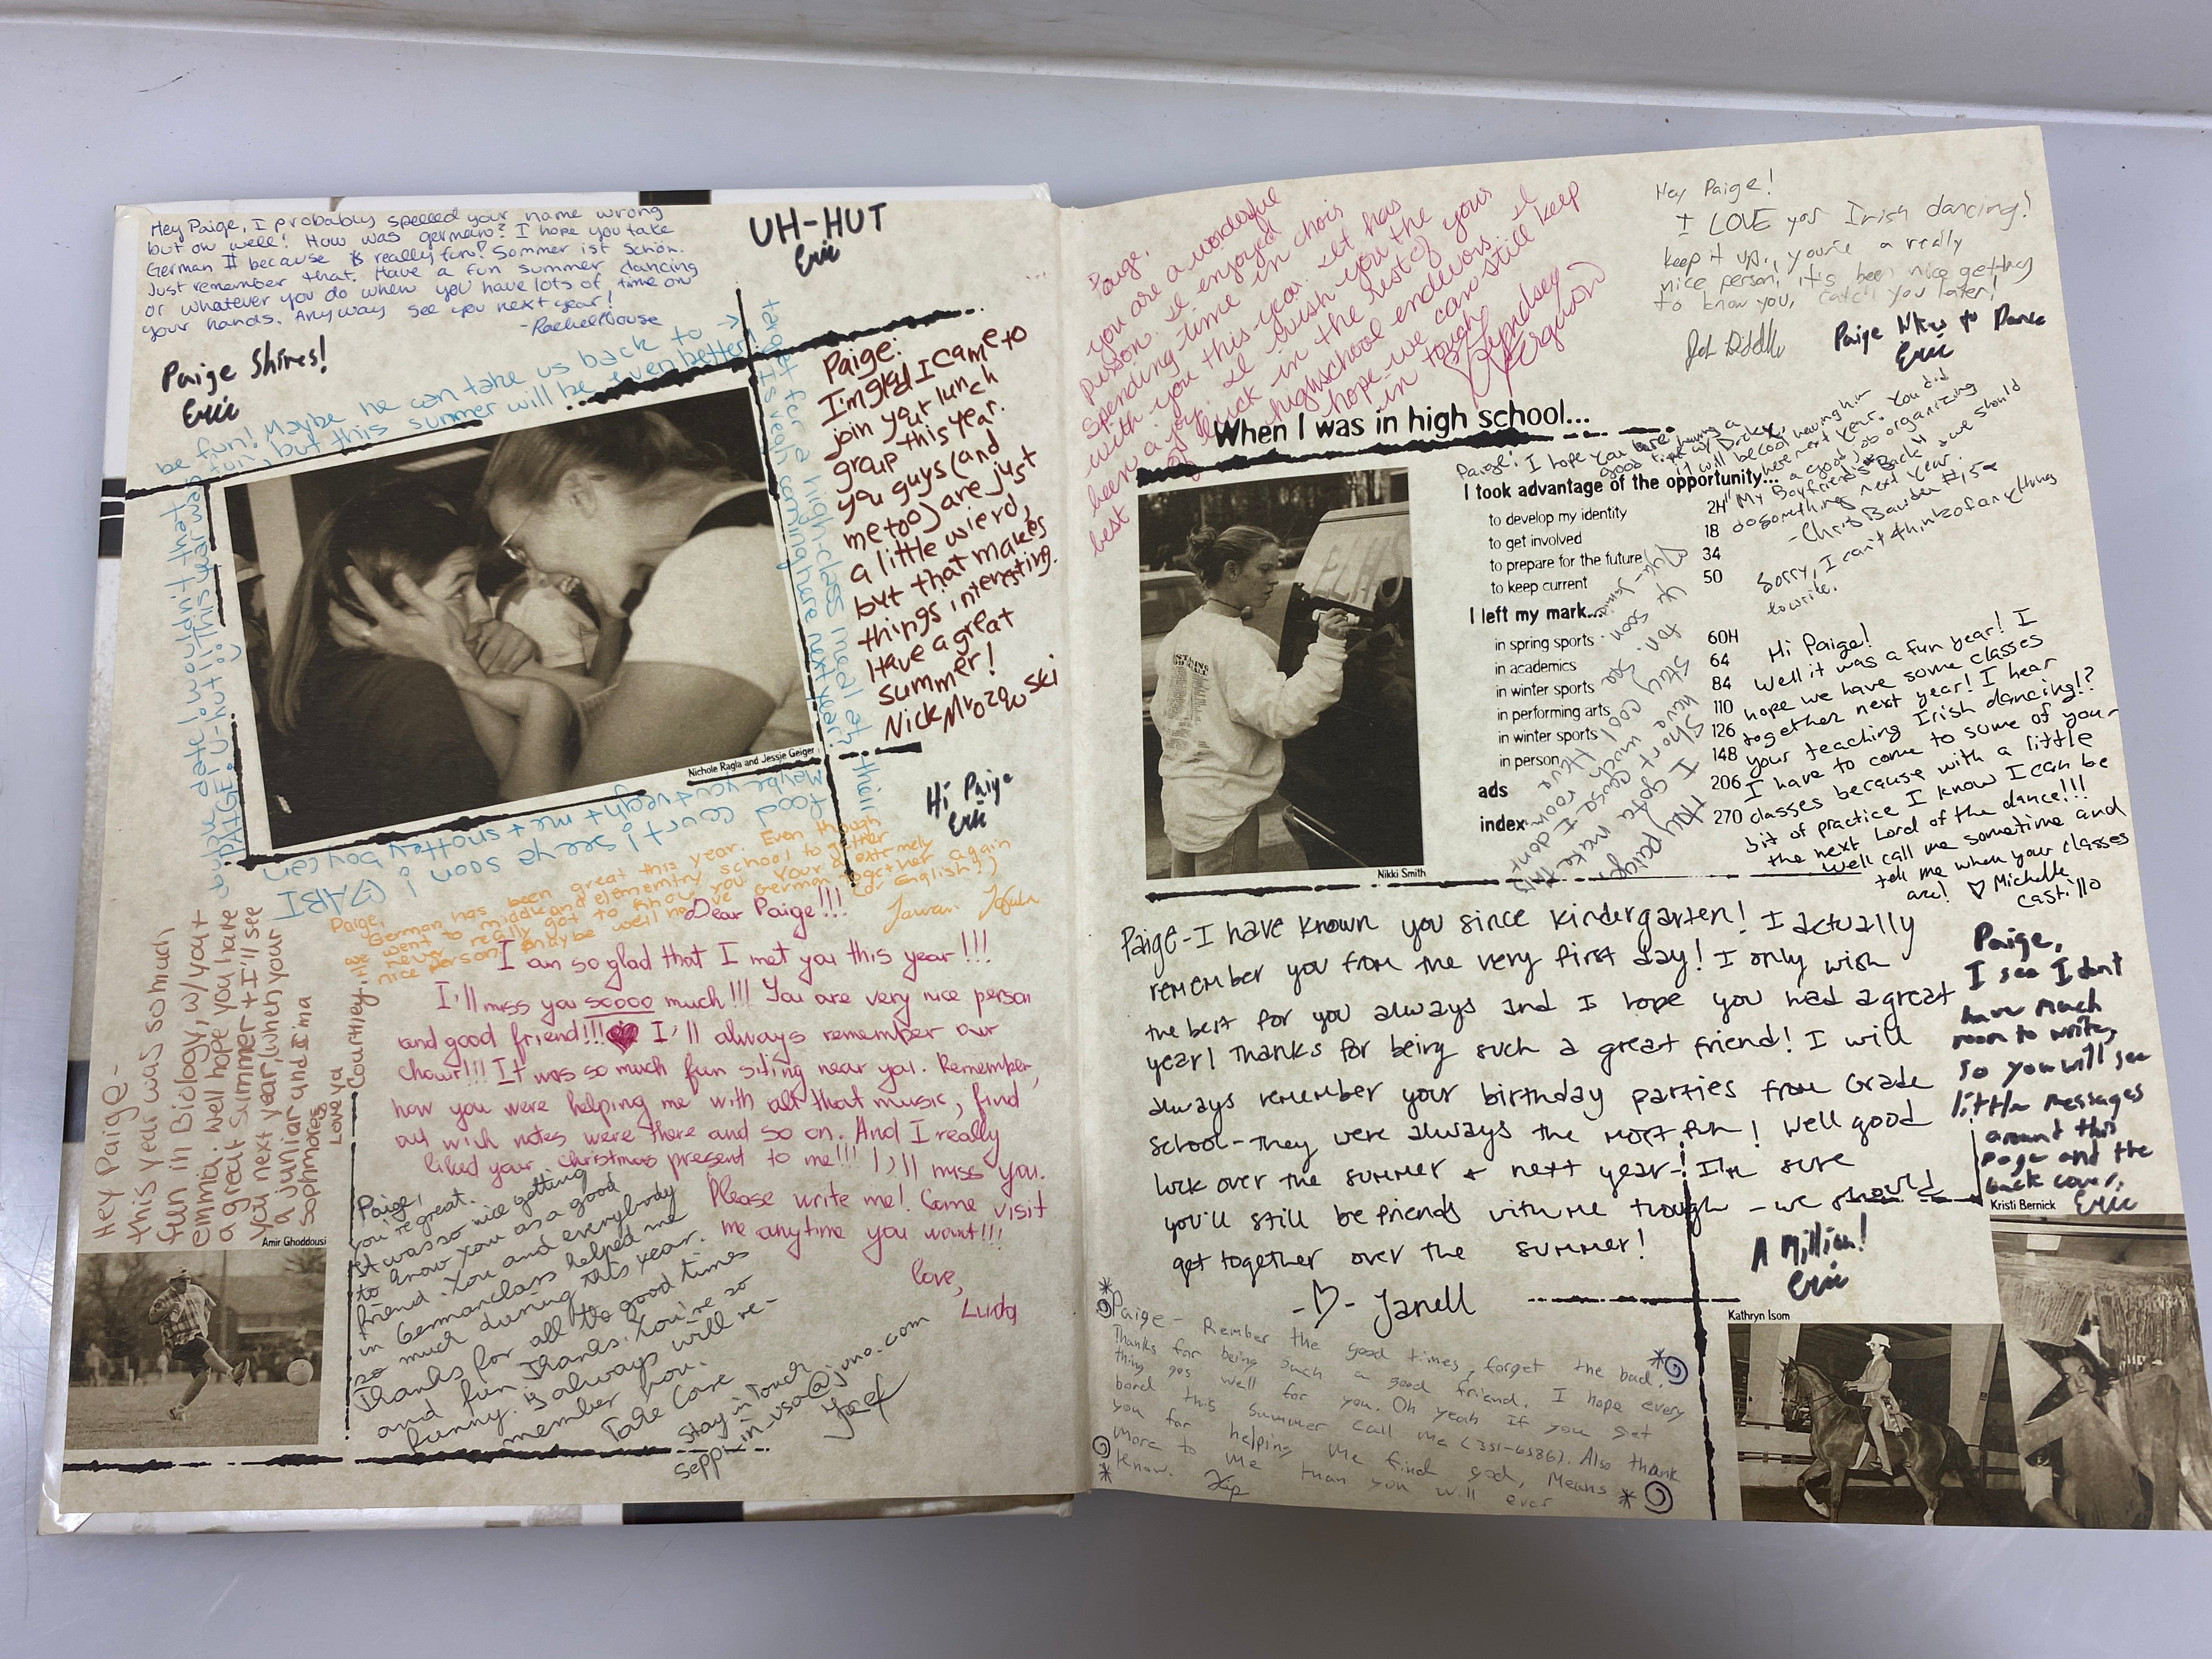 Hey Paige, I probably spelled your name wrong
but oh well! How was german? I hope you take
German II because is really fun! Sommer ist schön.
Just remember that. Have a fun summer dancing
or whatever you do when you have lots of time on
your hands. Anyway see you next year!
-Rachel House
UH-HUT
Eric
Paige Shires!
Eric
be fun! Maybe he can take us back to
but this summer will be even better!
target for a high-class meal at
Paige:
I'm glad I came to
join your lunch
group this year.
you guys (and
me too) are just
a little wierd,
but that makes
things interesting.
Have a great
summer!
Nick Mrozowski
Nichole Ragla and Jessie Geiger
Hi Paige
Eric
food court! see ya soon!
GABI
Paige,
German has been great this year. Even though
we went to middle and elementry school together
never really got to know you. Your a extremely
nice person! maybe we'll have German together again
(or English!)
Hey Paige-
this year was so much
fun in Biology, w/ you +
emma. Well hope you have
a great summer + I'll see
you next year (when your
a junior and I'm a
sophmore)
Love ya
Courtney
Amir Ghoddousi
Dear Paige!!!
I am so glad that I met you this year!!!
I'll miss you soooo much!!! You are very nice person
and good friend!!! I'll always remember our
choir!!! It was so much fun siting near you. Remember,
how you were helping me with all that music, find
out wich notes were there and so on. And I really
liked your christmas present to me!!! I'll miss you.
Please write me! Come visit
me anytime you want!!!
love,
Luda
Paige,
you're great.
It was so nice getting
to know you as a good
friend. You and everybody
in Germanclass helped me
so much during this year.
Thanks for all the good times
and fun. Thanks. You're so
funny. I always will re-
member you.
Take Care
Stay in Touch
seppi_in_usa@juno.com
Josef
Paige,
you are a wonderful
person. I enjoyed
spending time in choir
with you this year. It has
been a joy. I wish you the
best of luck in the rest of your
highschool endevors. I
hope we can still keep
in touch.
Lyndsey
Ferguson
Hey Paige!
I LOVE your Irish dancing!
keep it up, you're a really
nice person, it's been nice getting
to know you, catch you later!
Paige likes to Dance
Eric
When I was in high school...
Paige! I hope you are having a
good time w/ Dicky,
it will be cool having him
here next year. You did
a good job organizing
"My Boyfriend's Back" & we should
do something next year.
Sorry, I can't think of anything
to write.
I took advantage of the opportunity...
to develop my identity 2H
to get involved 18
to prepare for the future 34
to keep current 50
I left my mark...
in spring sports 60H
in academics 64
in winter sports 84
in performing arts 110
in winter sports 126
in person 148
ads 206
index 270
Nikki Smith
Hi Paige!
Well it was a fun year! I
hope we have some classes
together next year! I hear
your teaching Irish dancing!?
I have to come to some of your
classes because with a little
bit of practice I know I can be
the next Lord of the dance!!!
Well call me sometime and
tell me when your classes
are! ♡ Michelle
Castillo
Paige-I have known you since kindergarten! I actually
remember you from the very first day! I only wish
the best for you always and I hope you had a great
year! Thanks for being such a great friend! I will
always remember your birthday parties from Grade
school-they were always the most fun! Well good
luck over the summer + next year-! I'm sure
you'll still be friends with me though - we should
get together over the summer!
-♡- Janell
Paige,
I see I dont
have much
room to write,
so you will see
little messages
around this
page and the
back cover,
Eric
Kristi Bernick
A Million!
Eric
Kathryn Isom
Paige- Rember the good times, forget the bad.
Thanks for being such a good friend. I hope every
thing gos well for you. Oh yeah if you get
bord this summer call me (351-6586). Also thank
you for helping me find god, Means
more to me than you will ever
know.